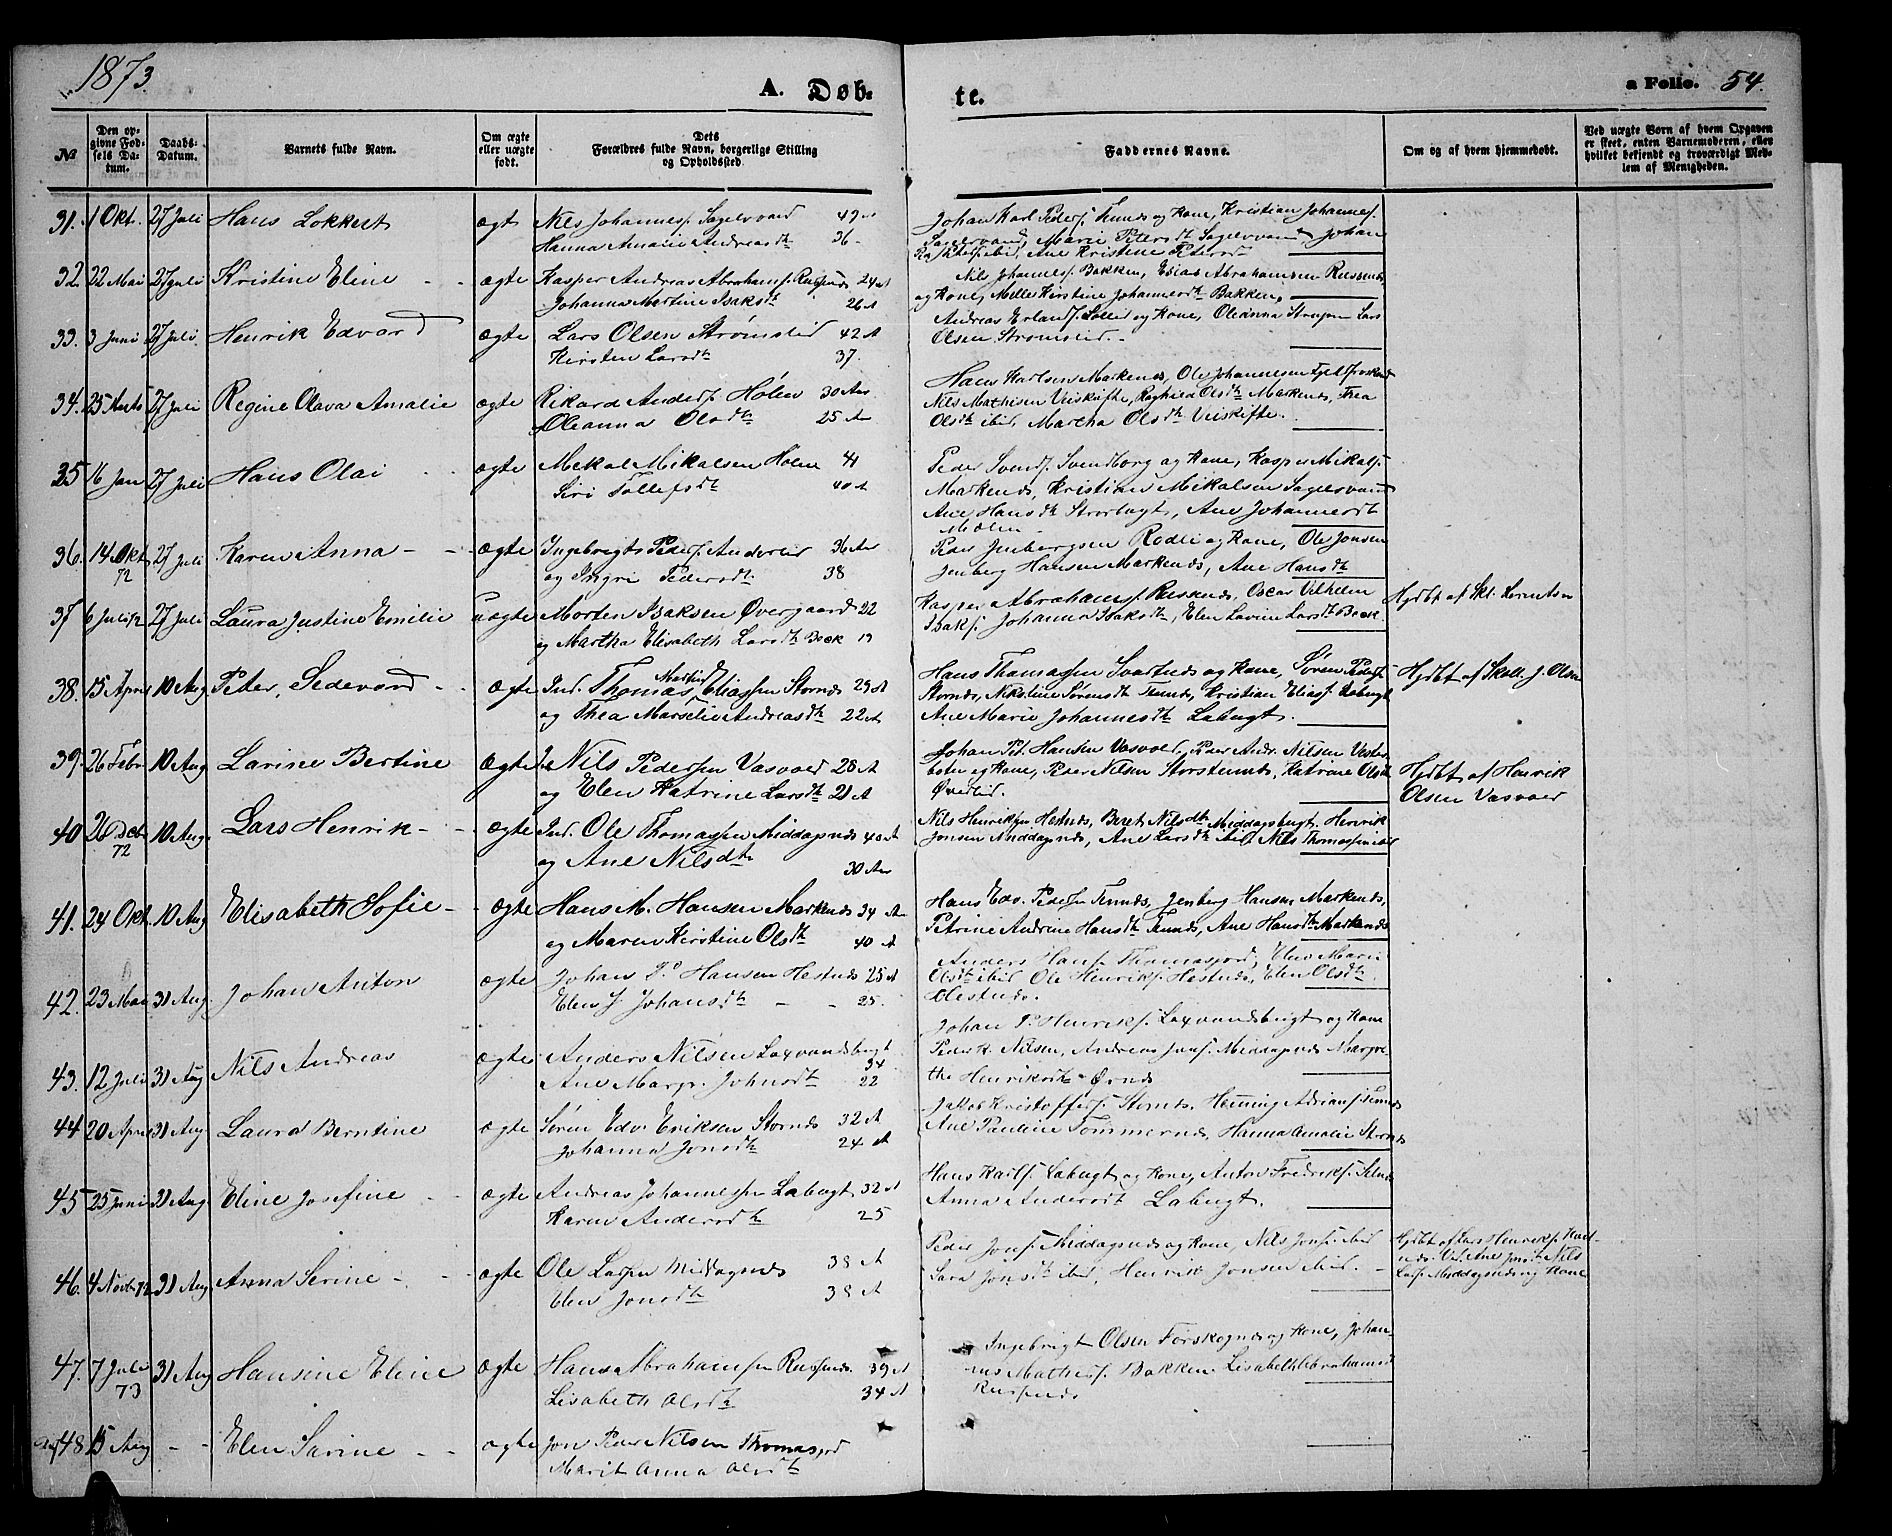 1873.
A. Døb-
te.
a Folio. 54.
No
Den op-
givne Fød-
sels Da-
tum.
Daabs-
Datum.
Barnets fulde Navn.
Om ægte
eller uægte
født.
Dets
Forældres fulde Navn, borgerlige Stilling
og Opholdssted.
Faddernes Navne.
Om og af hvem hjemmedøbt.
Ved uægte Børn af hvem Opgaven
er skeet, enten Barnemoderen, eller
hvilket bekjendt og troværdigt Med-
lem af Menigheden.
31. 1 Okt. 27 Juli Hans Lokkert ægte Nils Johannes. Sagelvvand 49 A
Hanna Amalie Andreasdt 36
Johan Karl Peders. Tunds og Kone, Kristian Johannes.
Sagelvvand, Marie Petersdt Sagelvvand Johan
ibid, Ane Kristine Petersd
32. 22 Mai 27 Juli Kristine Eline - - ægte Kasper Andreas Abrahams. Russnds 24 A
Johanna Martine Isaksdt 26 A
Nils Johannes. Bakken, Esias Abrahamsen Russends
og Kone, Mette Kirstine Johannesdt Bakken,
33. 3 Juni 27 Juli Henrik Edvard ægte Lars Olsen Strømslid 42 A
Kirsten Larsdt 37.
Andreas Erlands. Sollid og Kone, Oleanna Lars
Olsen Strømslid.
34. 25 Marts 27 Juli Regine Olava Amalie ægte Rikard Anders. Holm 30 Aar
Oleanna Olsdt 25 A
Hans Karlsen Markends, Ole Johannesen
Nils Mathisen Veiskifte, Raghild Olsdt Markends, Thea
Olsdt ibid, Martha Olsdt Veiskifte.
35 16 Jan 27 Juli Hans Olai - - ægte Mikal Mikalsen Holm 41
Siri Tollefsdt 40 A
Peder Svends. Svendborg og Kone, Kasper Mikals.
Markends, Kristian Mikalsen Sagelvvand
Ane Hansdt Storbugt, Ane Johannesdt
36. 14 Okt 72 27 Juli Karen Anna - - ægte Ingebrigt Peders. Anderslid 36 Aar
og Ingri Pedersdt. 38
Peder Jenbergsen Rodli og Kone, Ole Jonsen
Jenberg Hansen Markends, Ane Hansdt
37 6 Juli 72 27 Juli Laura Justine Emilie uægte Morten Isaksen Øvergaard 22
og Martha Elisabeth Larsdt Bæk 19
Kasper Abrahams. Russnds, Oscar Vilhelm
Isaks. Johanna Isaksdt, Elen Lavine Larsdt Bæk
Hjdbt af Skl. Kornetsen
38. 15 April 10 Aug Peter, Sedevard - - ægte Ind. Thomas Martin Eliassen Stornds 29 A
og Thea Marselie Andreasdt 22 A
Hans Thomassen Svartnds og Kone, Søren Peders.
Stornds, Nikoline Sørensdt Tunds, Kristian Elias. Labugt
Ane Marie Johannesdt Labugt.
Hjdbt af Skoll. J. Olsen
39. 26 Febr 10 Aug Larine Bertine ægte I. Nils Pedersen Vasvold 28 A
og Elen Katrine Larsdt 21 A
Johan Pet. Hansen Vasvold. Peder Andr. Nilsen Vester-
og Kone, Peder Nilsen Storstennds, Katrine Olsdt
Øverlid.
Hjdbt af Henrik
Olsen Vasvold
40 26 Dcb 72 10 Aug. Lars Henrik - - ægte Ind. Ole Thomassen Middagsnds 40 A
og Ane Nilsdt 30 Aar
Nils Henriksen Hestnds, Beret Nilsdt Middagsbugt, Henrik
Jonsen Middagsnds, Ane Larsdt ibid Nils Thomassen ibid
41. 24 Okt. 10 Aug Elisabeth Sofie - - ægte Hans M. Hansen Markends 34 A
og Maren Kirstine Olsdt 40 A
Hans Edv. Peders. Tunds, Jenberg Hansen Markends,
Petrine Andrine Hansdt Tunds, Ane Hansdt Markends
42. 23 Mai 31 Aug. Johan Anton ægte Johan P. Hansen Hestnds 25 A
Elen J Johansdt - - 25.
Anders Hans. Thomasjord, Elen Marie
Olsdt ibid Ole Henriks. Hestnds, Elen Olsdt
Hestnds.
43. 12 Juli 31 Aug Nils Andreas ægte Anders Nilsen Laxvandsbugt 34
Ane Margr. Johnsdt 22
Johan P. Henriks. Laxvandsbugt og Kone
Peder K. Nilsen, Andreas Jons. Middagsnds Margre-
the Henriksdt Ørnds
44 20 April 31 Aug. Laura Berntine ægte Søren Edv. Eriksen Stornds 32 A
Johanna Jonsdt 24 A
Jakob Kristoffers. Stornds, Henning Adrians. Tunds
Ane Pauline Tømmernds, Hanna Amalie Stornds
45 25 Juni 31 Aug Eline Josefine - - ægte Andreas Johannessen Labugt 32 A
Karen Andersdt 25
Hans Karls. Labugt og Kone, Anton Fredriks.
Anna Andersdt Labugt.
46. 4 Novb 72 31 Aug Anna Serine - - ægte Ole Larsen Middagsnds 38 A
Elen Jonsdt 38 A
Peder Jons. Middagsnds og Kone, Nils Jons. ibid
Sara Jonsdt ibid, Henrik Jonsen ibid.
Hjdbt af Lars Henriks.
Vid. Ane Jonsdt Nils
Lars. Middagsnds og Kone
47. 7 Juli 73 31 Aug Hansine Eline ægte Hans Abrahamsen Russnds. 39 A
Lisabeth Olsdt 34 A
Ingebrigt Olsen Forskognds og Kone, Johan-
nes Mathis. Bakken Lisabeth Abrahamsd
Russnds
48 15 Aug - - Elen Sarine - - ægte Jon Peder Nilsen Thomasjord
Marit Anna Olsdt